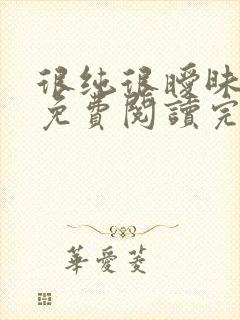 很纯很曖昧
免費閱讀完
華愛菱